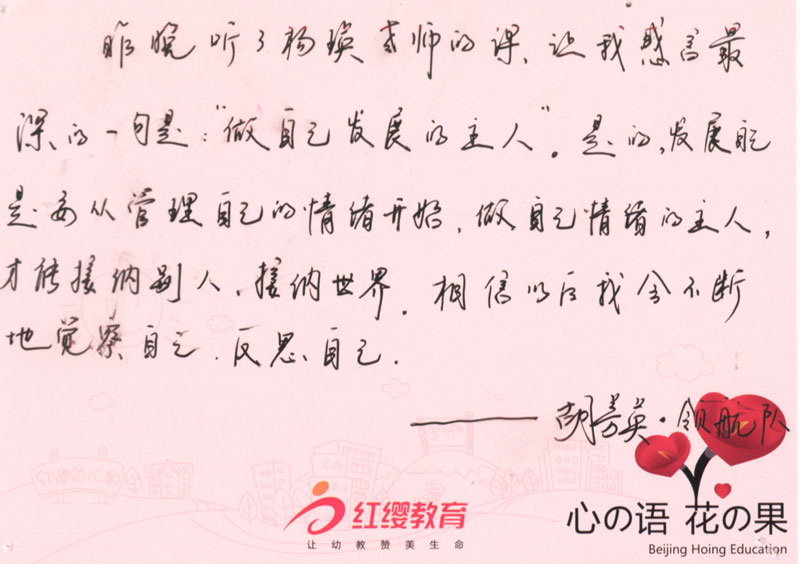 昨晚听了杨瑛老师的课、让我感言最
深的一句是："做自己发展的主人"。是的，发展自己
是要从管理自己的情绪开始，做自己情绪的主人，
才能接纳别人、接纳世界。相信以后我会不断
地觉察自己．反思自己．
——胡芳英·领航队
红缨幼儿园
红缨教育
让幼教赞美生命
心の语 花の果
Beijing Hoing Education